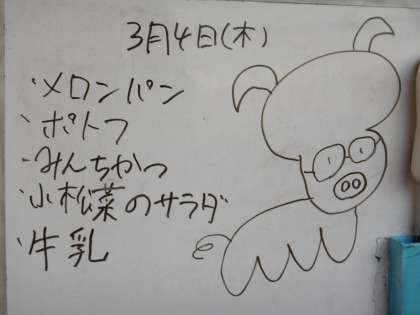 3月4日(木)
・メロンパン
・ポトフ
・みんちかつ
・小松菜のサラダ
・牛乳